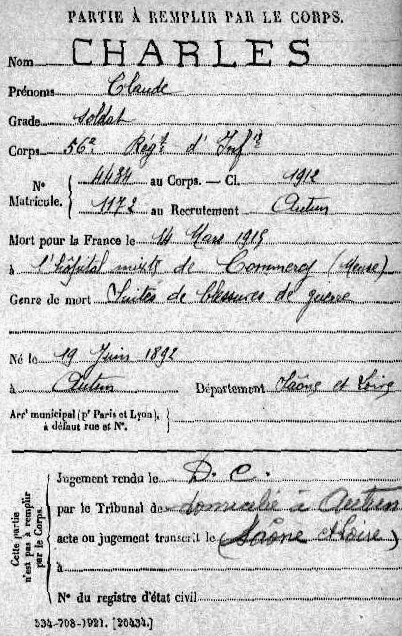 PARTIE À REMPLIR PAR LE CORPS.
Nom CHARLES
Prénoms Claude
Grade soldat
Corps 56e Régt d'Infie
N° Matricule. 4484 au Corps. — Cl. 1912
1172 au Recrutement Autun
Mort pour la France le 14 Mars 1915
à l'hôpital mixte de Commercy (Meuse)
Genre de mort Suites de blessures de guerre
Né le 19 Juin 1892
à Autun Département Saône et Loire
Arrt municipal (pr Paris et Lyon), à défaut rue et N°.
Cette partie n'est pas à remplir par le Corps.
Jugement rendu le D. C.
par le Tribunal de domicilié à Autun
acte ou jugement transcrit le (Saône et Loire)
à
N° du registre d'état civil
534-708-1921. [26434.]